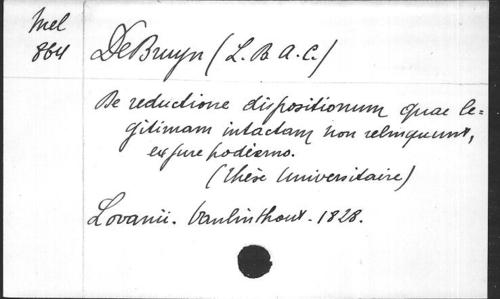 Mel
864
De Bruyn (L. B. A. C.)
De reductione dispositionum quae le=
gitimam intactam non relinquunt,
ex jure hodierno.
(Thèse Universitaire)
Lovanii. Vanlinthout. 1828.